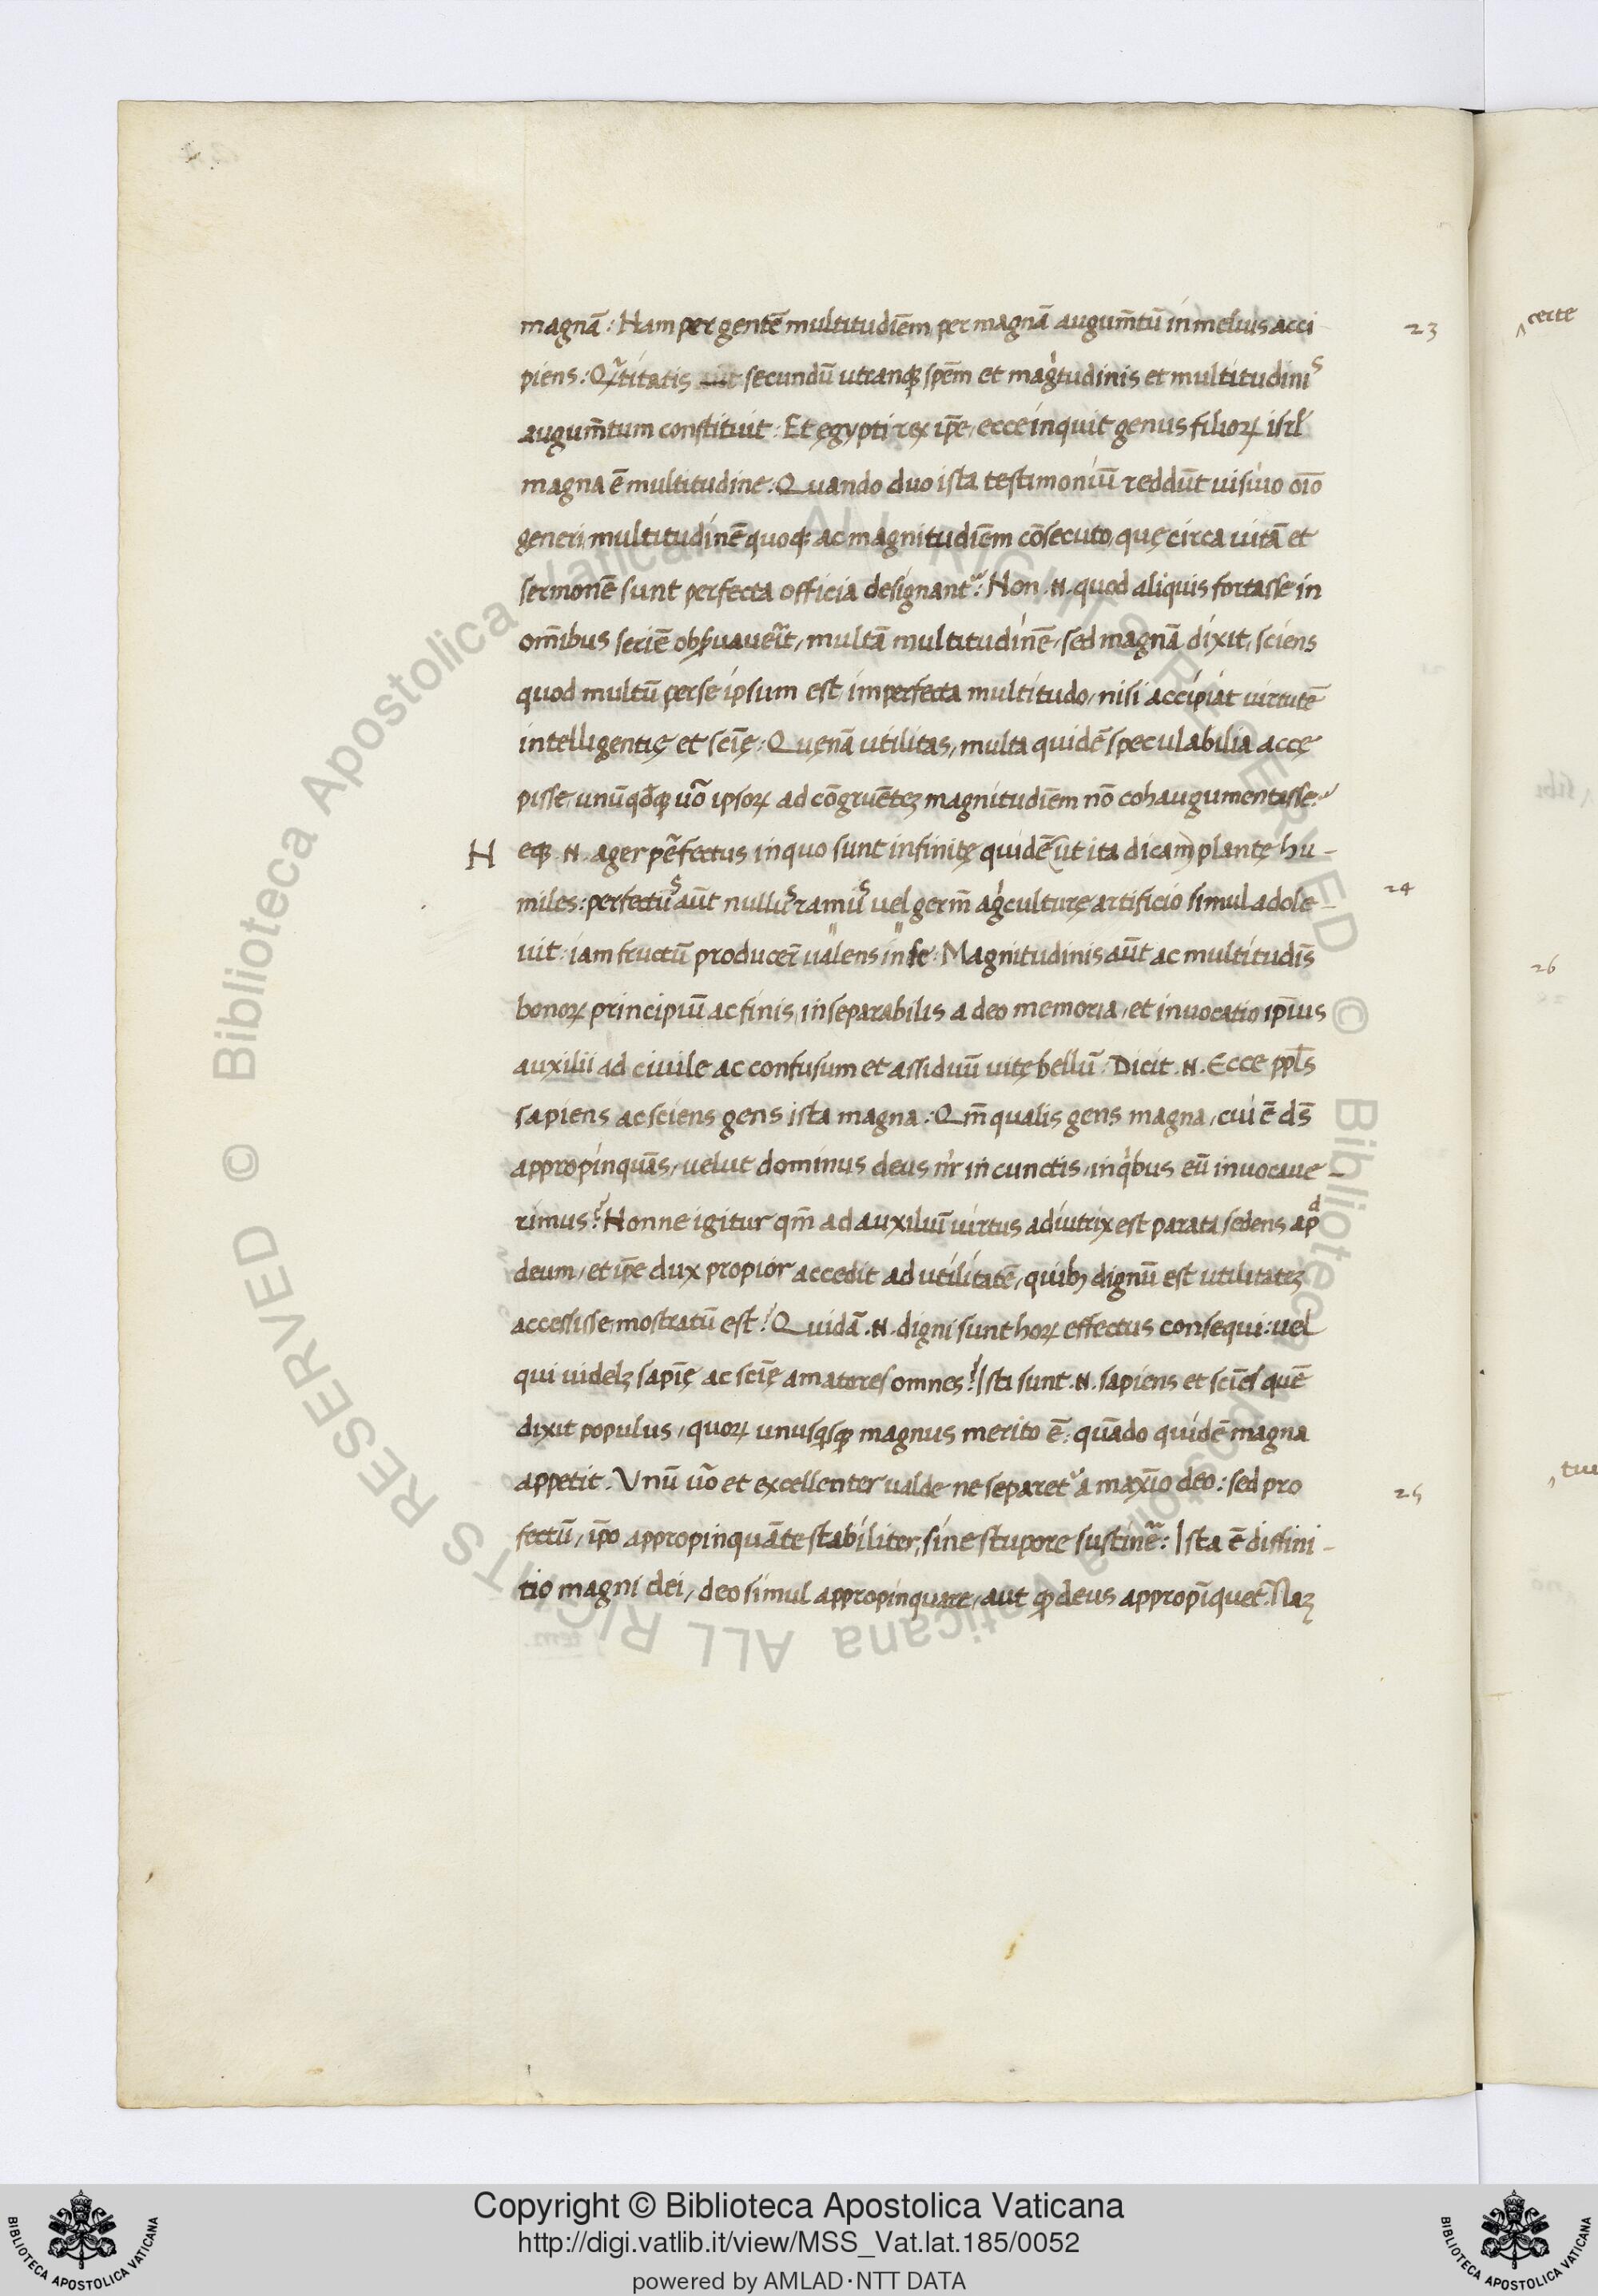 magnā: Nam per gentē multitudiēm, per magnā augum̄tū in melius acci
piens: Qātitatis aūt secundū utranq; spēm et magitudinis et multitudinis
augum̄tum constituit: Et ęgypti rex ip̄e, ecce inquit genus filioꝝ isrl
magna ē multitudine: Quando duo ista testimoniū reddūt uisiuo oīo
generi, multitudinē quoq; ac magnitudiēm cōsecuto, quę circa uitā et
sermonē sunt perfecta officia designant: Non .N. quod aliquis fortasse in
om̄ibus seriē obseruauerit, multā multitudinē, sed magnā dixit, sciens
quod multū per se ipsum est imperfecta multitudo, nisi accipiat uirtutē
intelligentię et scīę: Quęnā utilitas, multa quidē speculabilia accę
pisse, unūqdq; uō ipsoꝝ ad cōgruētez magnitudiēm nō cohaugumentasse?
N eq; .N. ager pēfectus in quo sunt infinitę quidē (ut ita dicam) plantę hu-
miles: perfectus aūt nullus ramus uel germ̄ agiculturę artificio simul adole-
uit, iam fructū producer̄ ualens in se: Magnitudinis aūt ac multitudīs
bonoꝝ principiū ac finis, inseparabilis a deo memoria, et inuocatio ip̄ius
auxilii ad ciuile ac confusum et assiduū uitę bellū: Dicit .N. Ecce ppl̄s
sapiens ac sciens gens ista magna: Qm̄ qualis gens magna, cui ē ds̄
appropinquās, uelut dominus deus nr̄ in cunctis, in qibus eū inuocaue-
rimus? Nonne igitur qm̄ ad auxiliū uirtus adiutrix est parata sedens apd
deum, et ip̄e dux propior accedit ad utilitatē, quib; dignū est utilitatez
accessisse, mostratū est? Quidā .N. digni sunt hoꝝ effectus consequi: uel
qui uidelz sapīę ac scīę amatores omnes? Isti sunt .N. sapiens et sciēs quē
dixit populus, quoꝝ unusqsq; magnus merito ē: quādo quidē magna
appetit. Vnū uō et excellenter ualde ne separet a maxīo deo: sed pro
fectū, ip̄o appropinquāte stabiliter, sine stupore sustinē: Ista ē diffini-
tio magni dei, deo simul appropinquare, aut qd deus appropīquet. Naz
23
24
25
certe
26
tuu
Copyright © Biblioteca Apostolica Vaticana
http://digi.vatlib.it/view/MSS_Vat.lat.185/0052
powered by AMLAD·NTT DATA
BIBLIOTECA APOSTOLICA VATICANA
BIBLIOTECA APOSTOLICA VATICANA
© Biblioteca Apostolica Vaticana ALL RIGHTS RESERVED
© Biblioteca Apostolica Vaticana ALL RIGHTS RESERVED